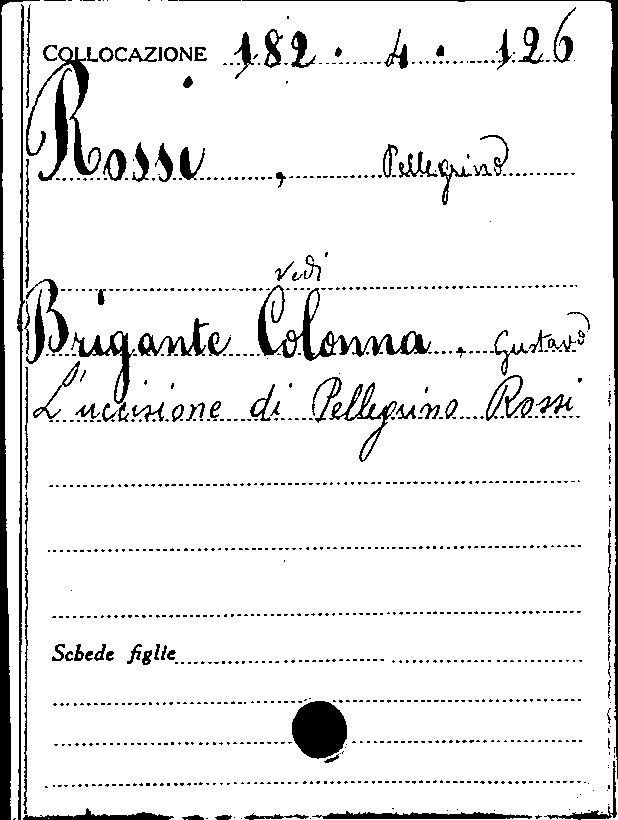 COLLOCAZIONE 182. 4. 126
Rossi, Pellegrino
vedi
Brigante Colonna, Gustavo
L'uccisione di Pellegrino Rossi
Schede figlie